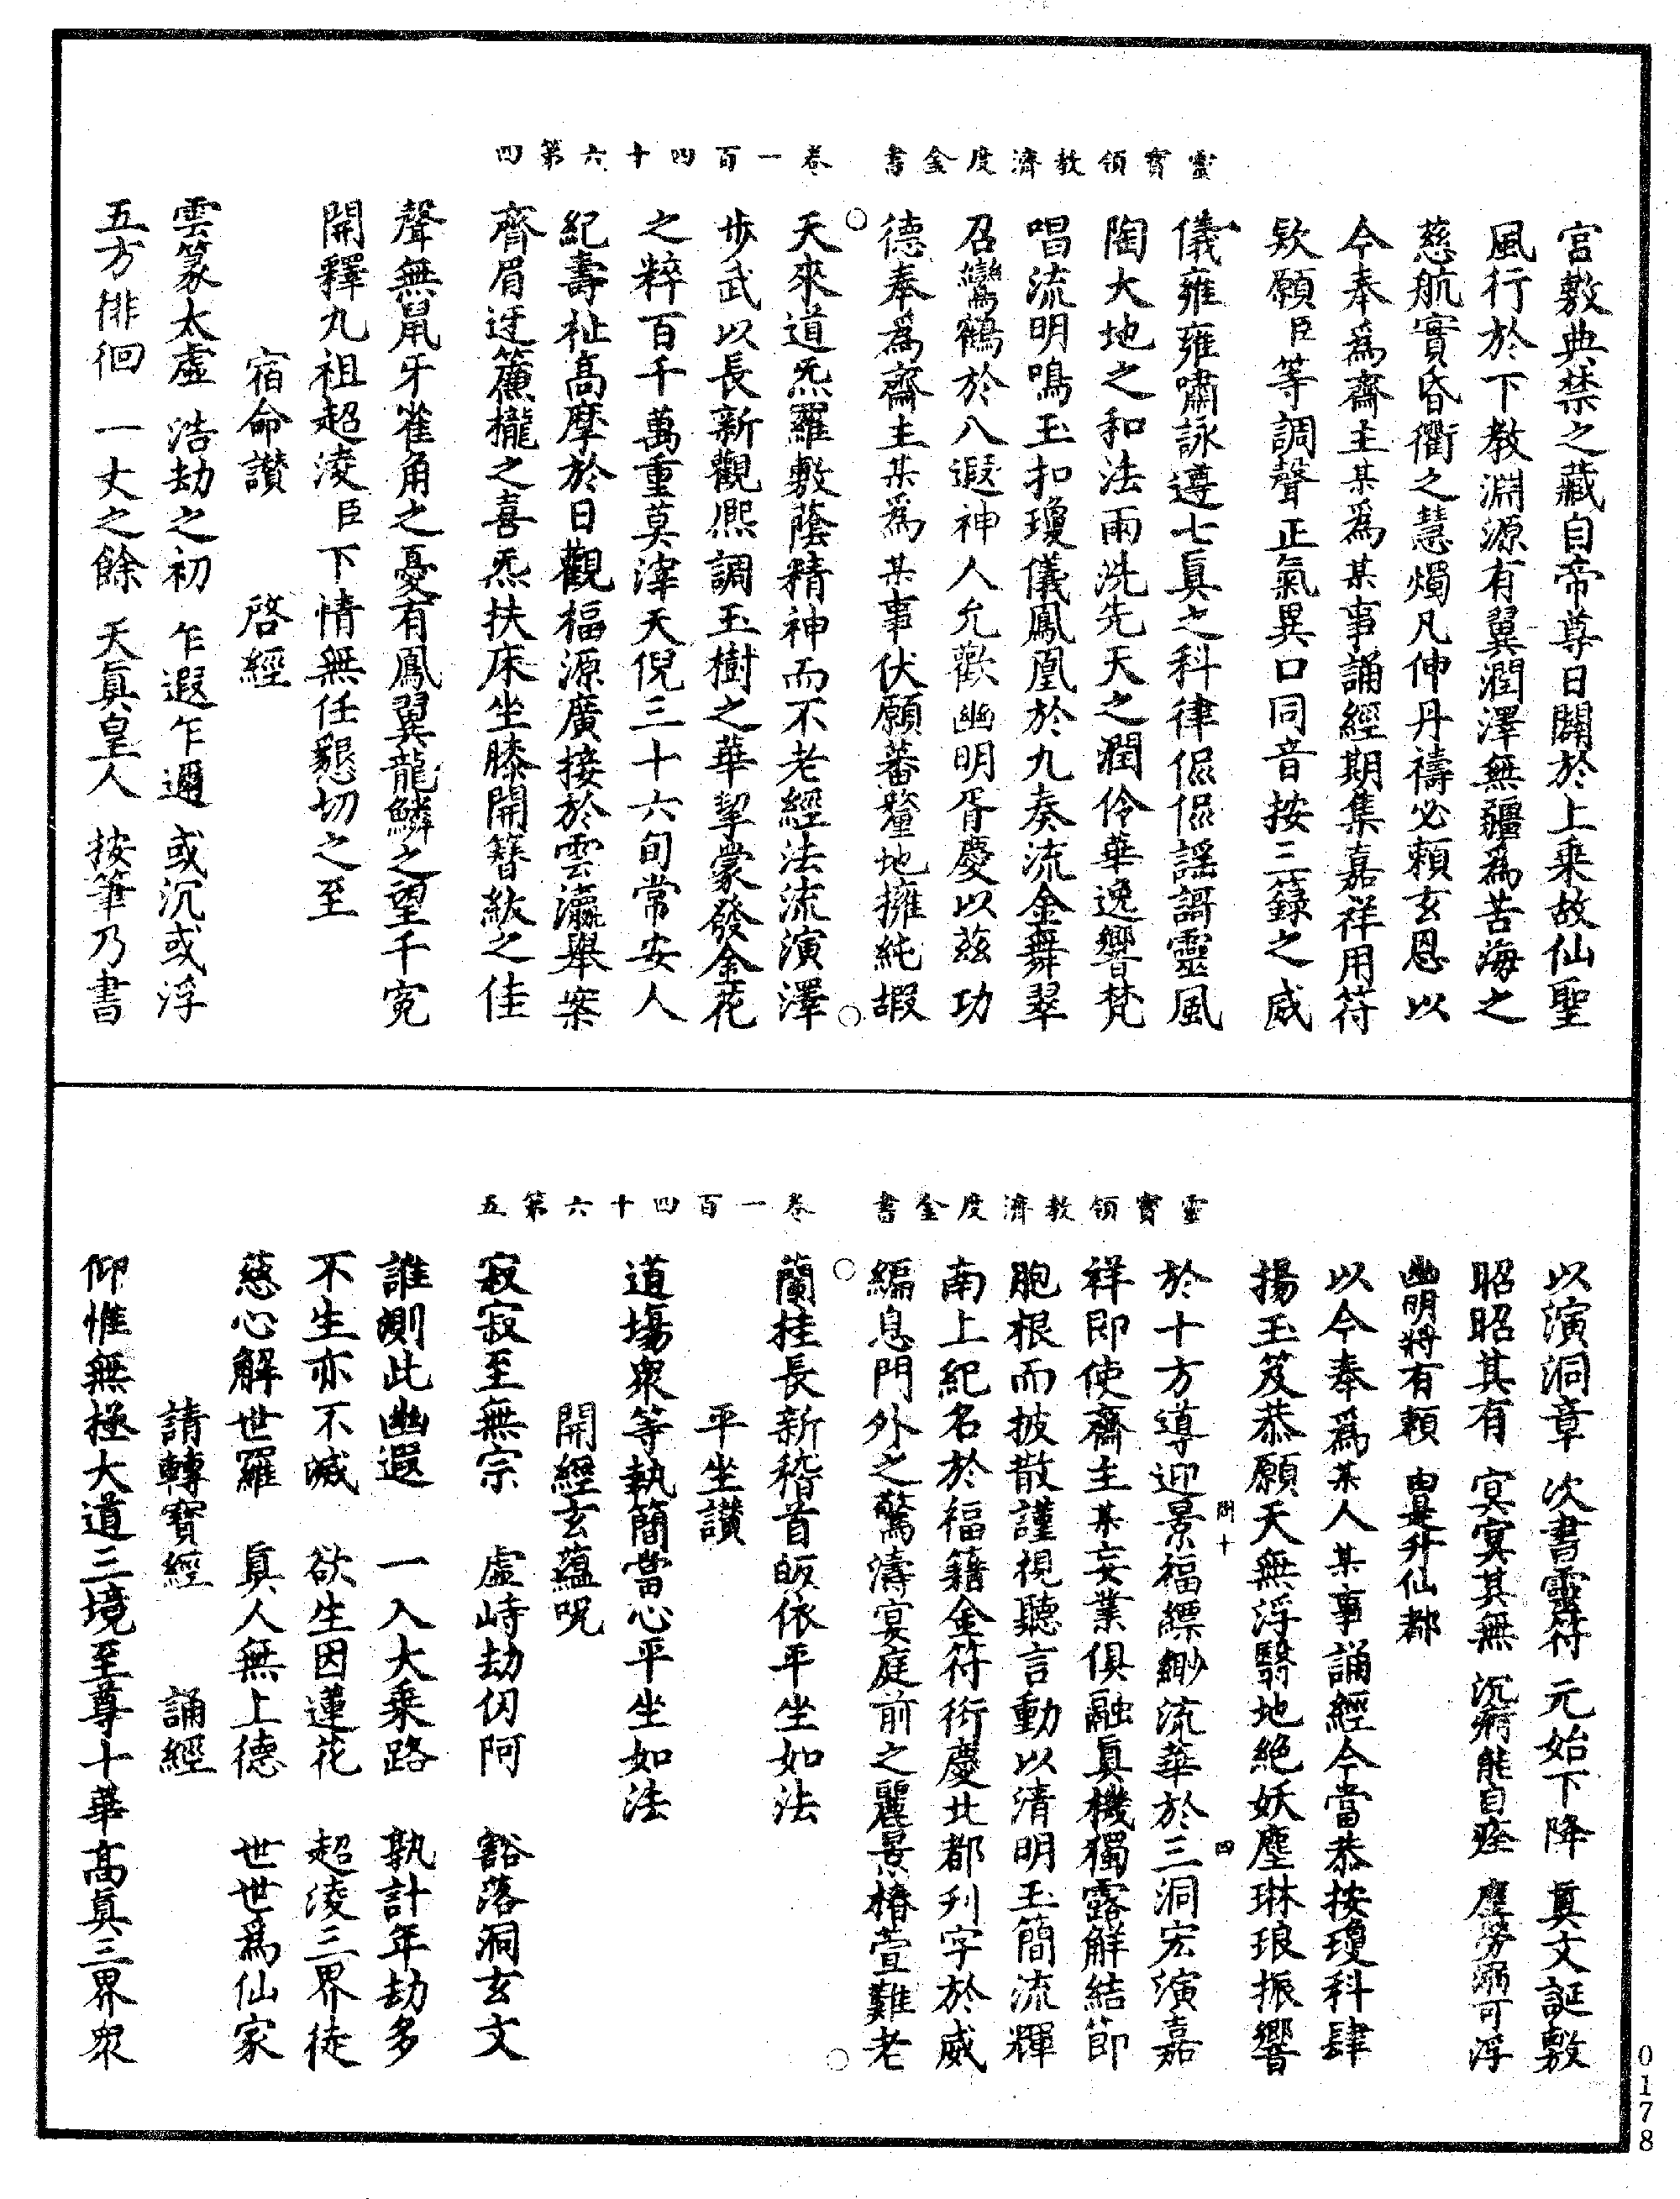 宮敷典禁之藏自帝尊日闢於上乗故仙聖
風行於下教淵源有翼潤澤無疆為苦海之
慈航實昏衢之慧燭凡伸丹禱必賴玄恩以
今奉爲齋主某爲某事誦經期集嘉祥用符
欵願臣等調聲正氣異口同音按三籙之威
儀雍雍嘯詠遵七眞之科律僛僛謡謌靈風
陶大地之和法雨洗先天之潤伶華逸響梵
唱流明鳴玉扣瓊儀鳳凰於九奏流金舞翠
召鸞鶴於八遐神人允歡幽明胥慶以茲功
德奉爲齋主某爲某事伏願蕃釐地擁純嘏
靈寳領教濟度金書 卷一百四十六第四
天來道炁羅敷蔭精神而不老經法流演澤
步武以長新觀熈調玉樹之華挈蒙發金花
之粹百千萬重莫滓天倪三十六旬常安人
紀壽祉高摩於日觀福源廣接於雲瀛舉案
齊眉迓簾櫳之喜炁扶床坐膝開簪紱之佳
聲無鼠牙雀角之憂有鳳翼龍鱗之望千寃
開釋九祖超淩臣下情無任懇切之至
宿命讃 啓經
雲篆太虛 浩劫之初 乍遐乍邇 或沉或浮
五方俳徊 一丈之餘 天眞皇人 按筆乃書
以演洞章 次書靈符 元始下降 眞文誕敷
昭昭其有 冥冥其無 沉痾能自痊 塵勞溺可浮
幽明將有賴 由是升仙都
以今奉爲某人某事誦經今當恭按瓊科肆
揚玉笈恭願天無浮翳地絕妖塵琳琅振響
於十方導迎景福縹緲流華於三洞宏演嘉
祥即使齋主某妄業俱融眞機獨露觧結節
胞根而披散謹視聽言動以清明玉簡流輝
南上紀名於福籍金符衍慶北都刋字於威
編息門外之驚濤宴庭前之麗景椿萱難老
靈寳領教濟度金書 卷一百四十六第五
蘭桂長新稽首皈依平坐如法
平坐讃
道場衆等執簡當心平坐如法
開經玄蘊呪
寂寂至無宗 虛峙劫仞阿 豁落洞玄文
誰測此幽遐 一入大乗路 孰計年劫多
不生亦不滅 欲生因蓮花 超淩三界徒
慈心解世羅 眞人無上德 世世爲仙家
請轉寶經 誦經
仰惟無極大道三境至尊十華高眞三界衆
0178